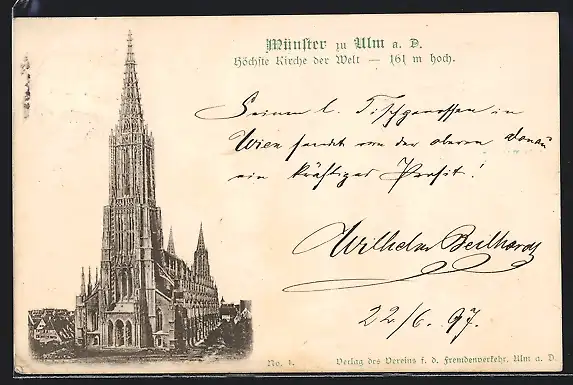 Münster zu Ulm a. D.
Höchste Kirche der Welt — 161 m hoch.
Seinen l. Tischgenossen in
Wien sendet von der oberen Donau
ein kräftiges Prosit!
Wilhelm Beilhardt
22/6. 97.
No. 1. Verlag des Vereins f. d. Fremdenverkehr, Ulm a. D.